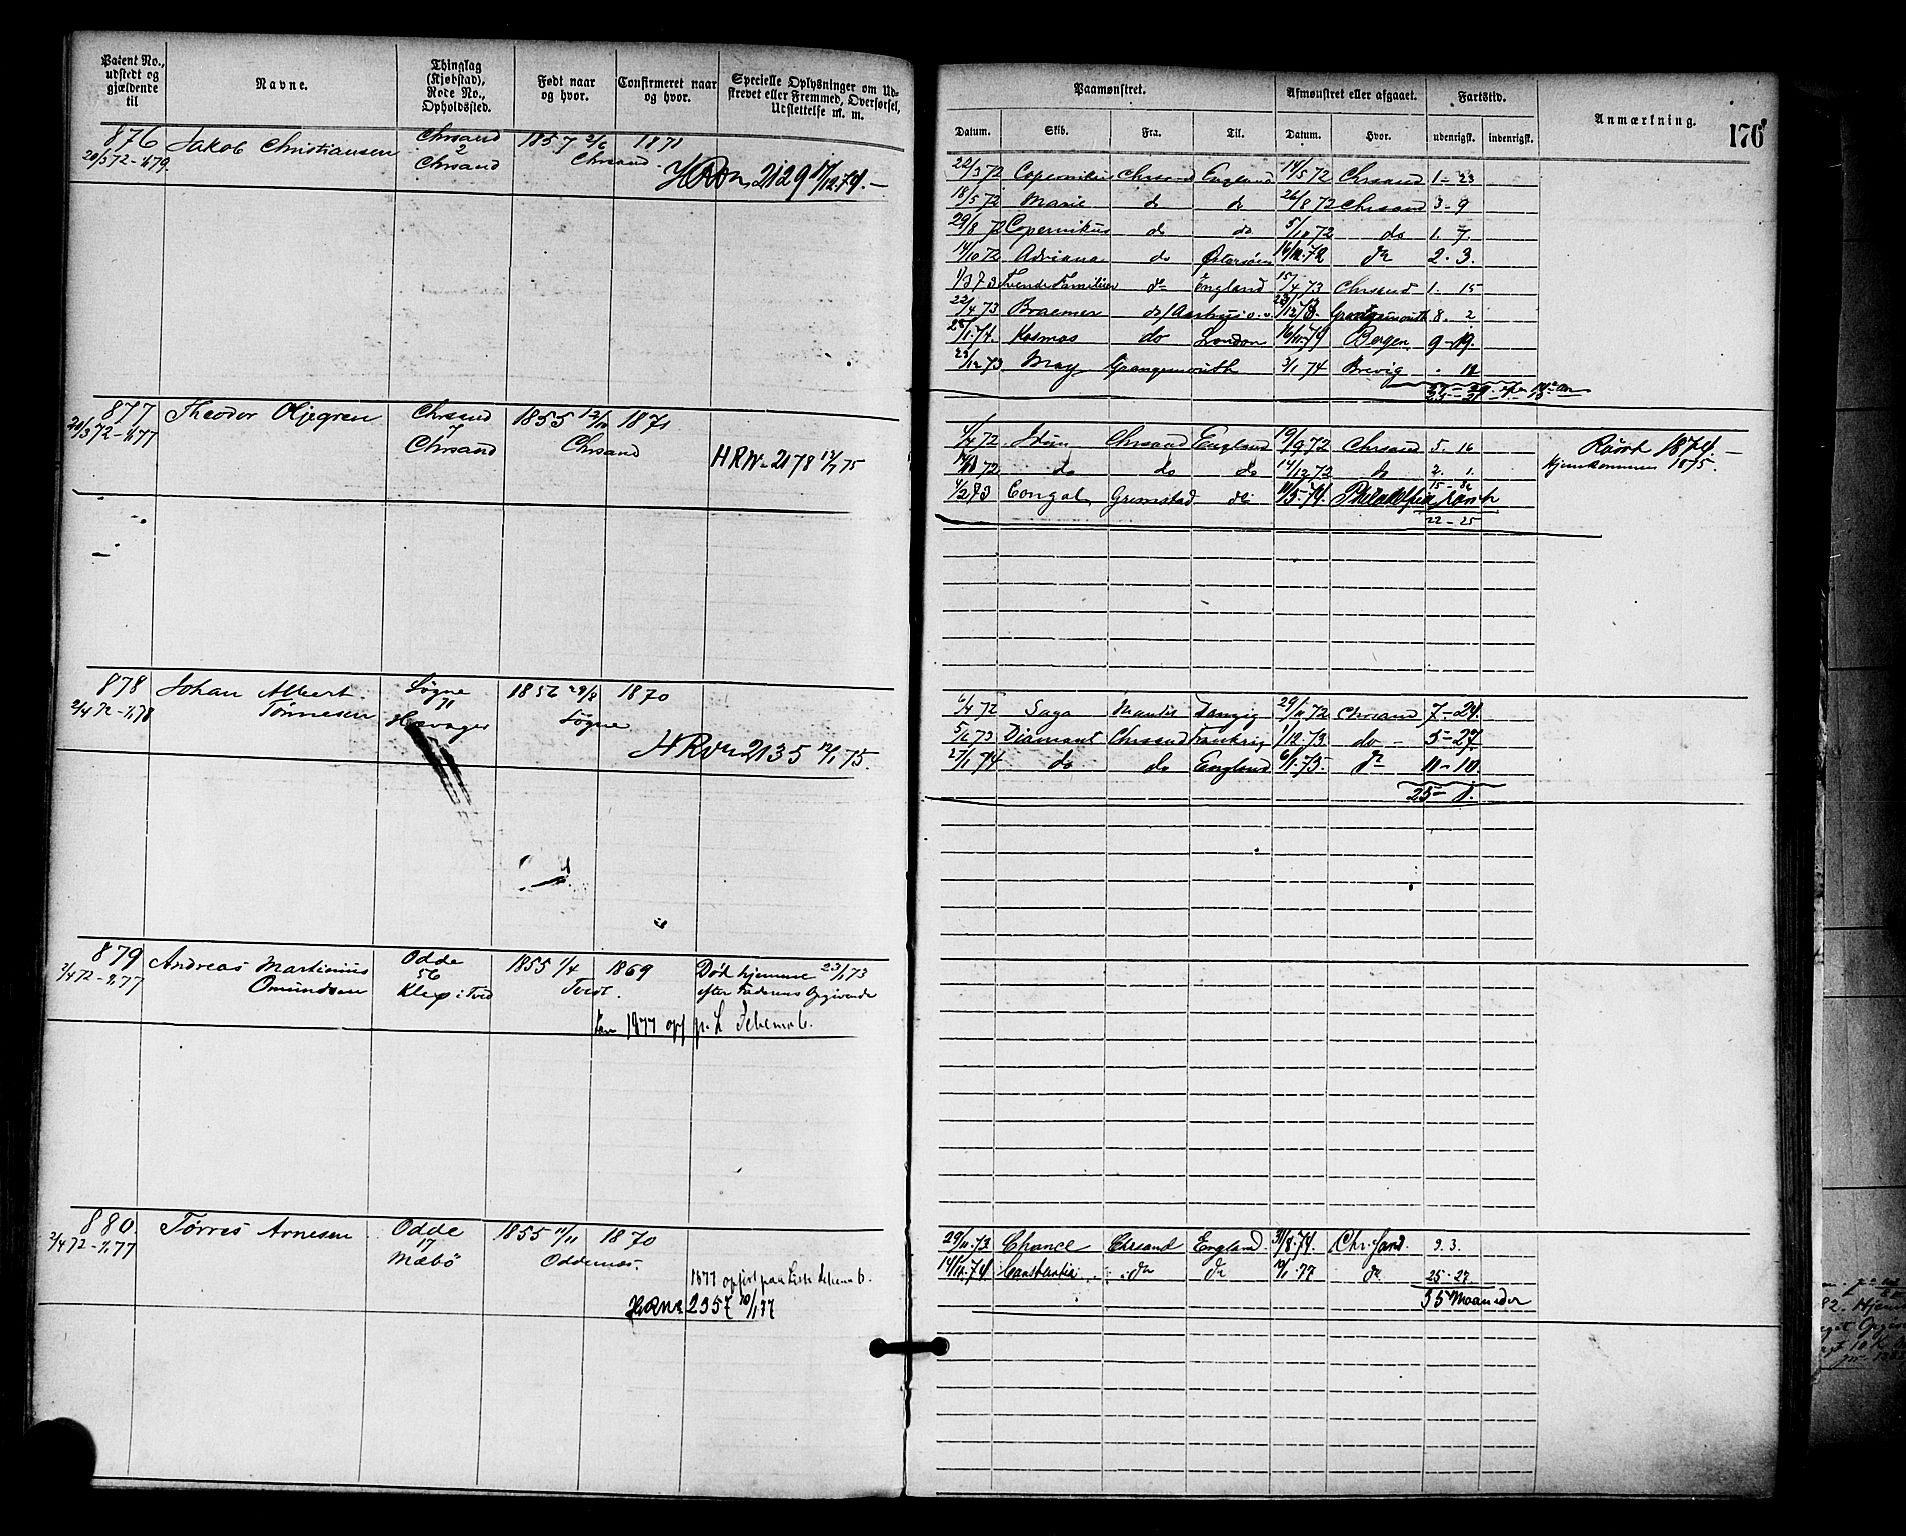 Patent No., udstedt og gjældende til
Navne.
Thinglag (Kjøbstad), Rode No., Opholdssted.
Født naar og hvor.
Confirmeret naar og hvor.
Specielle Oplysninger om Udstrevet eller Fremmed, Overførsel, Udslettelse m. m.
876 Jakob Christiansen Chrsand 1857 2/6 1871
20/3 72 - 1/1 79. 2 Chrsand Chrsand.
H R No 2129 17/12.74. —
877 Theodor Oljegren Chrsand 1855 12/10 1871
20/3 72 - 1/1 77 7 Chrsand Chrsand
H R No 2178 12/7 75
878 Johan Albert Søgne 1856 29/8 1870
2/4 72 - 1/1 78 Tønnesen 71 Søgne
H R No 2135 12/1 75.
879 Andreas Martinius Odde 1855 1/4 1869 Død hjemme 23/1 73
2/4 72 - 1/1 77 Omundsen 56 Klep i Tved Tvedt. efter Faderens Opgivende
1877 opf p. L Schema 6.
880. Tørres Arnesen Odde 1855 11/11 1870
2/4 72 - 1/1 77 17 Mæbö Oddernæs.
1877 opført paa Liste Schema 6.
H R No 2357 10/1 77
Paamønstret. Afmønstret eller afgaaet. Fartstid. Anmærkning. 176
Datum. Skib. Fra. Til. Datum. Hvor. udenrigst. indenrigst.
22/3 72 Chrsand England 14/5 72 Chrsand 1 - 23
18/5 72 Marie do do 26/8 72 Chrsand 3 - 9
29/8 72 Copernikus do do 5/10 72 do 1. 7.
14/10 72 Adriana do Østersøen 16/12.72 do 2. 3.
1/3 73 Tvende Familier do England 15/4 73 Chrsand 1. 15
22/4 73 Braemer do/Aarhus o. v. Grangemouth 8. 2
Kosmos do London 16/11.74 Bergen 9 - 19.
23/12 73 May Grangemouth 3/1 74 Brevig
4/4 72. Chrsand England 19/9 72 Chrsand 5. 16 Rømt 1874. —
do do do 14/12 72 do 2. 1. Hjemkommen 1875.
4/2 73 Congal Grimstad do 11/5.74. Philadelphia rømt
22 - 25
6/4 72 Saga Mandal Danzig 29/11 72 Chrsand 7 - 24.
5/6 73 Diamant Chrsand Frankrig 1/12.73. do - 5 - 27
27/1 74 do do England 6/1.75. do 11 - 10.
25 - 1.
29/11.73 Chance Chrsand England. 31/8.74. Chr.sand. 9. 3.
14/10.74 Constantia do do 10/1.77 do 25 - 27.
35 Maaneder